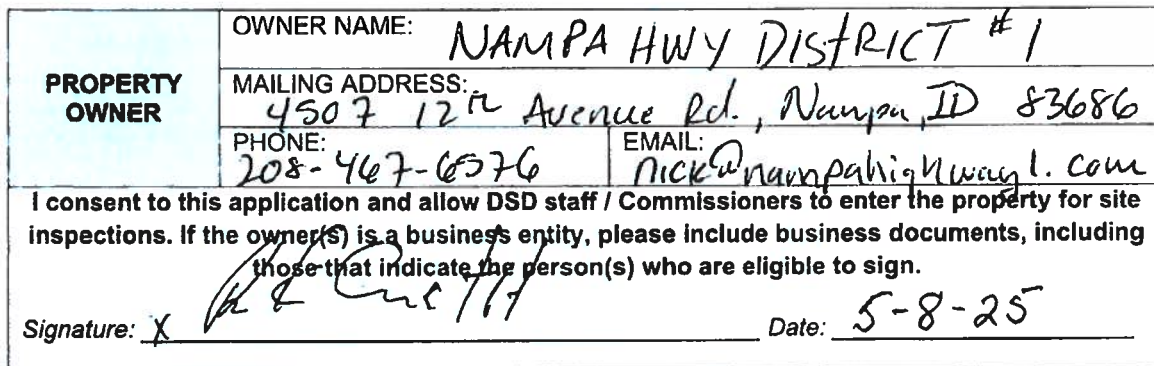 PROPERTY OWNER
OWNER NAME: NAMPA HWY DISTRICT #1
MAILING ADDRESS: 4507 12th Avenue Rd., Nampa, ID 83686
PHONE: 208-467-6576
EMAIL: nick@nampahighway1.com
I consent to this application and allow DSD staff / Commissioners to enter the property for site
inspections. If the owner(s) is a business entity, please include business documents, including
those that indicate the person(s) who are eligible to sign.
Signature: X
Date: 5-8-25